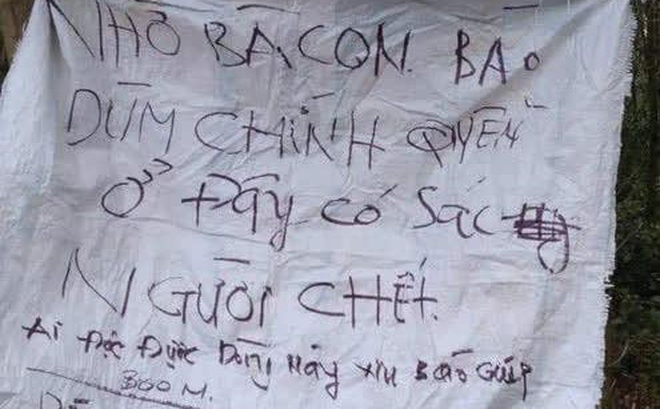 NHỜ BÀ CON BÁO
DÙM CHÍNH QUYỀN
Ở ĐÂY CÓ SÁC
NGƯỜI CHẾT.
Ai Đọc Được Dòng Này xin Báo Giúp
300 M.